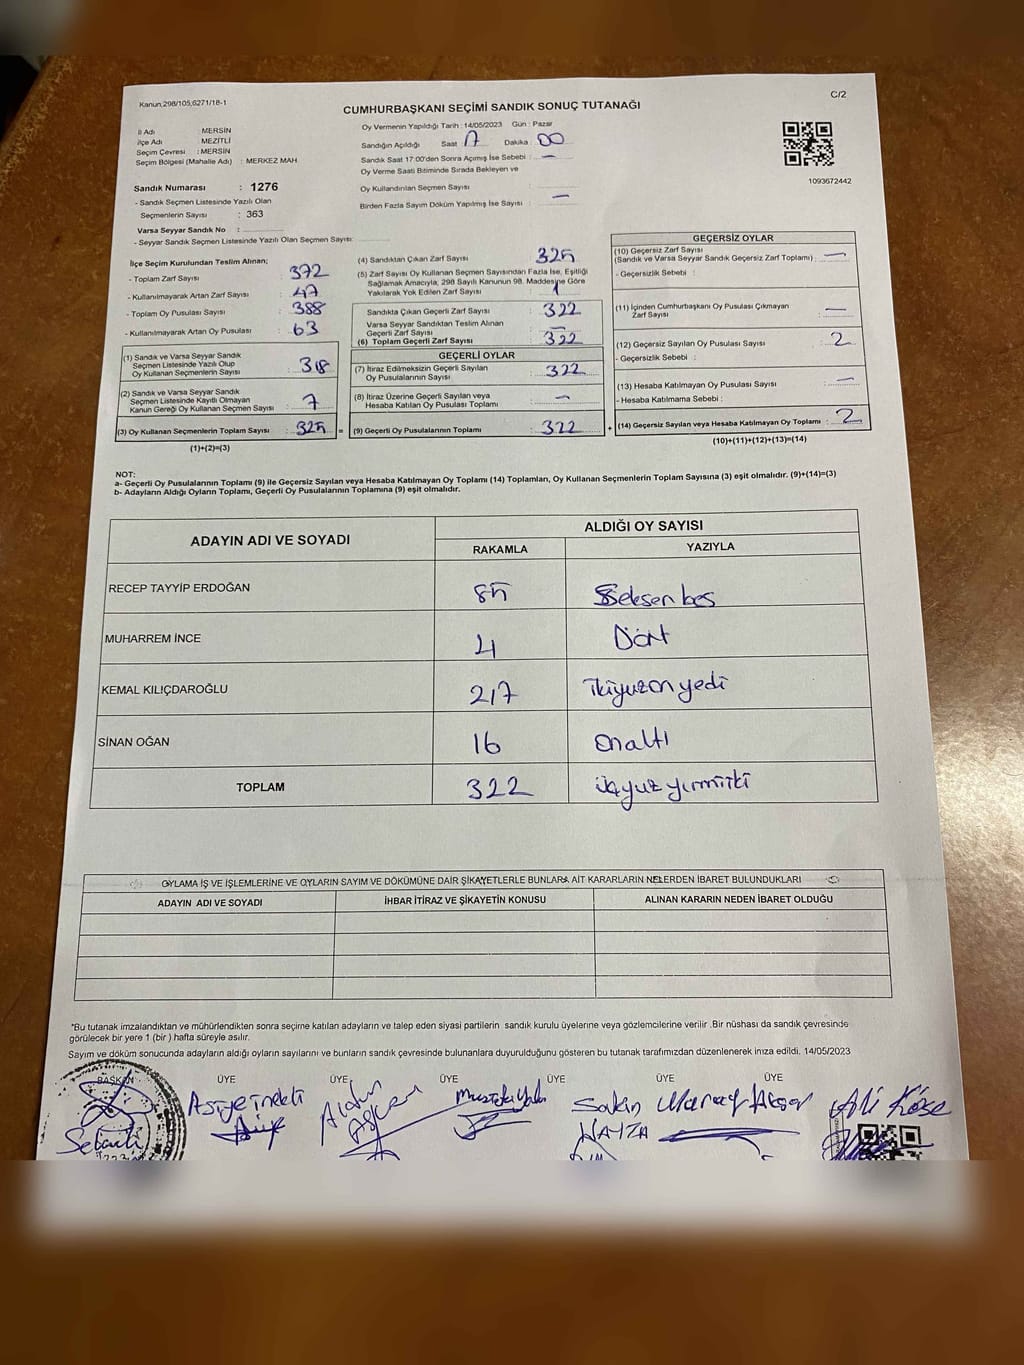 Kanun,298/105,6271/18-1
C/2
CUMHURBAŞKANI SEÇİMİ SANDIK SONUÇ TUTANAĞI
İl Adı : MERSİN
İlçe Adı : MEZİTLİ
Seçim Çevresi : MERSİN
Seçim Bölgesi (Mahalle Adı) : MERKEZ MAH
Oy Vermenin Yapıldığı Tarih : 14/05/2023 Gün : Pazar
Sandığın Açıldığı Saat 17 Dakika : 00
Sandık Saat 17:00'den Sonra Açımış İse Sebebi : —
Oy Verme Saati Bitiminde Sırada Bekleyen ve
Oy Kullandırılan Seçmen Sayısı :
Birden Fazla Sayım Döküm Yapılmış İse Sayısı : —
1093672442
Sandık Numarası : 1276
- Sandık Seçmen Listesinde Yazılı Olan
Seçmenlerin Sayısı : 363
Varsa Seyyar Sandık No :
- Seyyar Sandık Seçmen Listesinde Yazılı Olan Seçmen Sayısı:
İlçe Seçim Kurulundan Teslim Alınan;
- Toplam Zarf Sayısı : 372
- Kullanılmayarak Artan Zarf Sayısı : 47
- Toplam Oy Pusulası Sayısı : 388
- Kullanılmayarak Artan Oy Pusulası : 63
(1) Sandık ve Varsa Seyyar Sandık
Seçmen Listesinde Yazılı Olup
Oy Kullanan Seçmenlerin Sayısı : 318
(2) Sandık ve Varsa Seyyar Sandık
Seçmen Listesinde Kayıtlı Olmayan
Kanun Gereği Oy Kullanan Seçmen Sayısı : 7
(3) Oy Kullanan Seçmenlerin Toplam Sayısı : 325 =
(1)+(2)=(3)
(4) Sandıktan Çıkan Zarf Sayısı : 325
(5) Zarf Sayısı Oy Kullanan Seçmen Sayısından Fazla İse, Eşitliği
Sağlamak Amacıyla, 298 Sayılı Kanunun 98. Maddesine Göre
Yakılarak Yok Edilen Zarf Sayısı : 1
Sandıkta Çıkan Geçerli Zarf Sayısı : 322
Varsa Seyyar Sandıktan Teslim Alınan
Geçerli Zarf Sayısı : —
(6) Toplam Geçerli Zarf Sayısı : 322
GEÇERLİ OYLAR
(7) İtiraz Edilmeksizin Geçerli Sayılan
Oy Pusulalarının Sayısı : 322
(8) İtiraz Üzerine Geçerli Sayılan veya
Hesaba Katılan Oy Pusulası Toplamı : —
(9) Geçerli Oy Pusulalarının Toplamı : 322 +
GEÇERSİZ OYLAR
(10) Geçersiz Zarf Sayısı
(Sandık ve Varsa Seyyar Sandık Geçersiz Zarf Toplamı) : —
- Geçersizlik Sebebi :
(11) İçinden Cumhurbaşkanı Oy Pusulası Çıkmayan
Zarf Sayısı : —
(12) Geçersiz Sayılan Oy Pusulası Sayısı : 2
- Geçersizlik Sebebi :
(13) Hesaba Katılmayan Oy Pusulası Sayısı : —
- Hesaba Katılmama Sebebi :
(14) Geçersiz Sayılan veya Hesaba Katılmayan Oy Toplamı : 2
(10)+(11)+(12)+(13)=(14)
NOT:
a- Geçerli Oy Pusulalarının Toplamı (9) ile Geçersiz Sayılan veya Hesaba Katılmayan Oy Toplamı (14) Toplamları, Oy Kullanan Seçmenlerin Toplam Sayısına (3) eşit olmalıdır. (9)+(14)=(3)
b- Adayların Aldığı Oyların Toplamı, Geçerli Oy Pusulalarının Toplamına (9) eşit olmalıdır.
ADAYIN ADI VE SOYADI ALDIĞI OY SAYISI
RAKAMLA YAZIYLA
RECEP TAYYİP ERDOĞAN 85 Seksen beş
MUHARREM İNCE 4 Dört
KEMAL KILIÇDAROĞLU 217 ikiyüzon yedi
SİNAN OĞAN 16 onaltı
TOPLAM 322 üçyüz yirmiiki
OYLAMA İŞ VE İŞLEMLERİNE VE OYLARIN SAYIM VE DÖKÜMÜNE DAİR ŞİKAYETLERLE BUNLARA AİT KARARLARIN NELERDEN İBARET BULUNDUKLARI
ADAYIN ADI VE SOYADI İHBAR İTİRAZ VE ŞİKAYETİN KONUSU ALINAN KARARIN NEDEN İBARET OLDUĞU
*Bu tutanak imzalandıktan ve mühürlendikten sonra seçime katılan adayların ve talep eden siyasi partilerin sandık kurulu üyelerine veya gözlemcilerine verilir .Bir nüshası da sandık çevresinde
görülecek bir yere 1 (bir ) hafta süreyle asılır.
Sayım ve döküm sonucunda adayların aldığı oyların sayılarını ve bunların sandık çevresinde bulunanlara duyurulduğunu gösteren bu tutanak tarafımızdan düzenlenerek imza edildi. 14/05/2023
BAŞKAN ÜYE ÜYE ÜYE ÜYE ÜYE ÜYE
Ali Köse